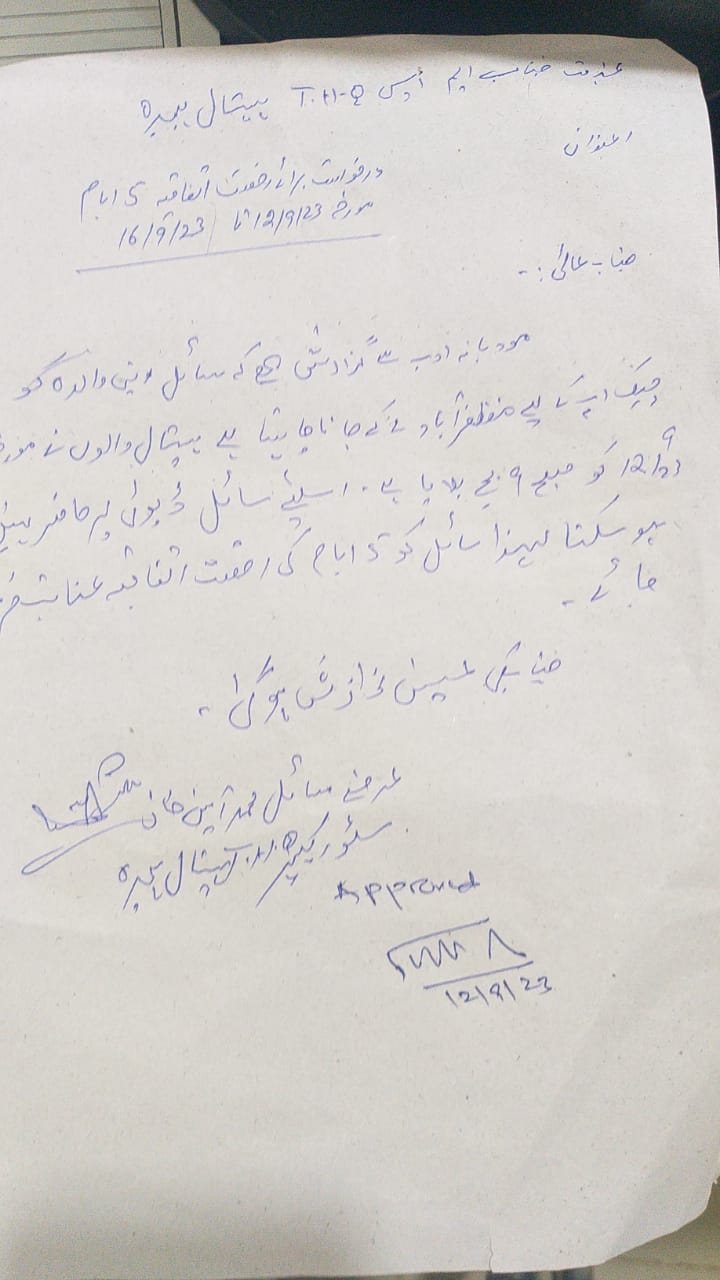 بخدمت جناب ایم ایس T.H.Q ہسپتال ہجیرہ
عنوان
درخواست برائے رخصت اتفاقیہ 5 ایام
مورخہ 12/9/23 تا 16/9/23
جناب عالی :-
مودبانہ ادب سے گزارش ہے کہ سائل اپنی والدہ کو
چیک اپ کے لیے مظفرآباد لے کے جانا چاہتا ہے ہسپتال والوں نے
12/9 کو صبح 9 بجے بلایا ہے۔ اسلئے سائل ڈیوٹی پر حاضر نہیں
ہو سکتا لہذا سائل کو 5 ایام کی رخصت اتفاقیہ عنایت
جائے۔
جناب کی عین نوازش ہو گی۔
عرضے سائل محمد آمین خان
سٹور کیپر T.H.Q ہسپتال ہجیرہ
Approved
12/9/23